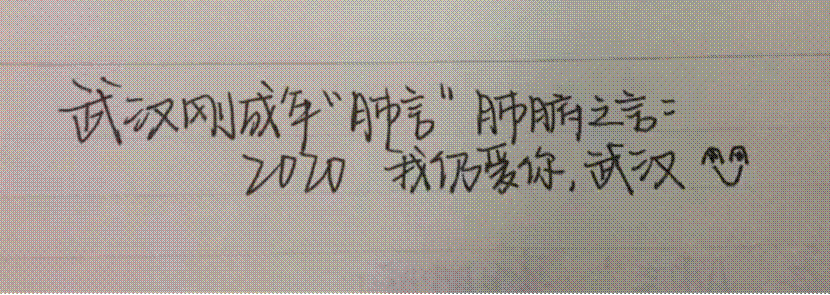 武汉刚成年“肺言”肺腑之言：
2020 我仍爱你,武汉